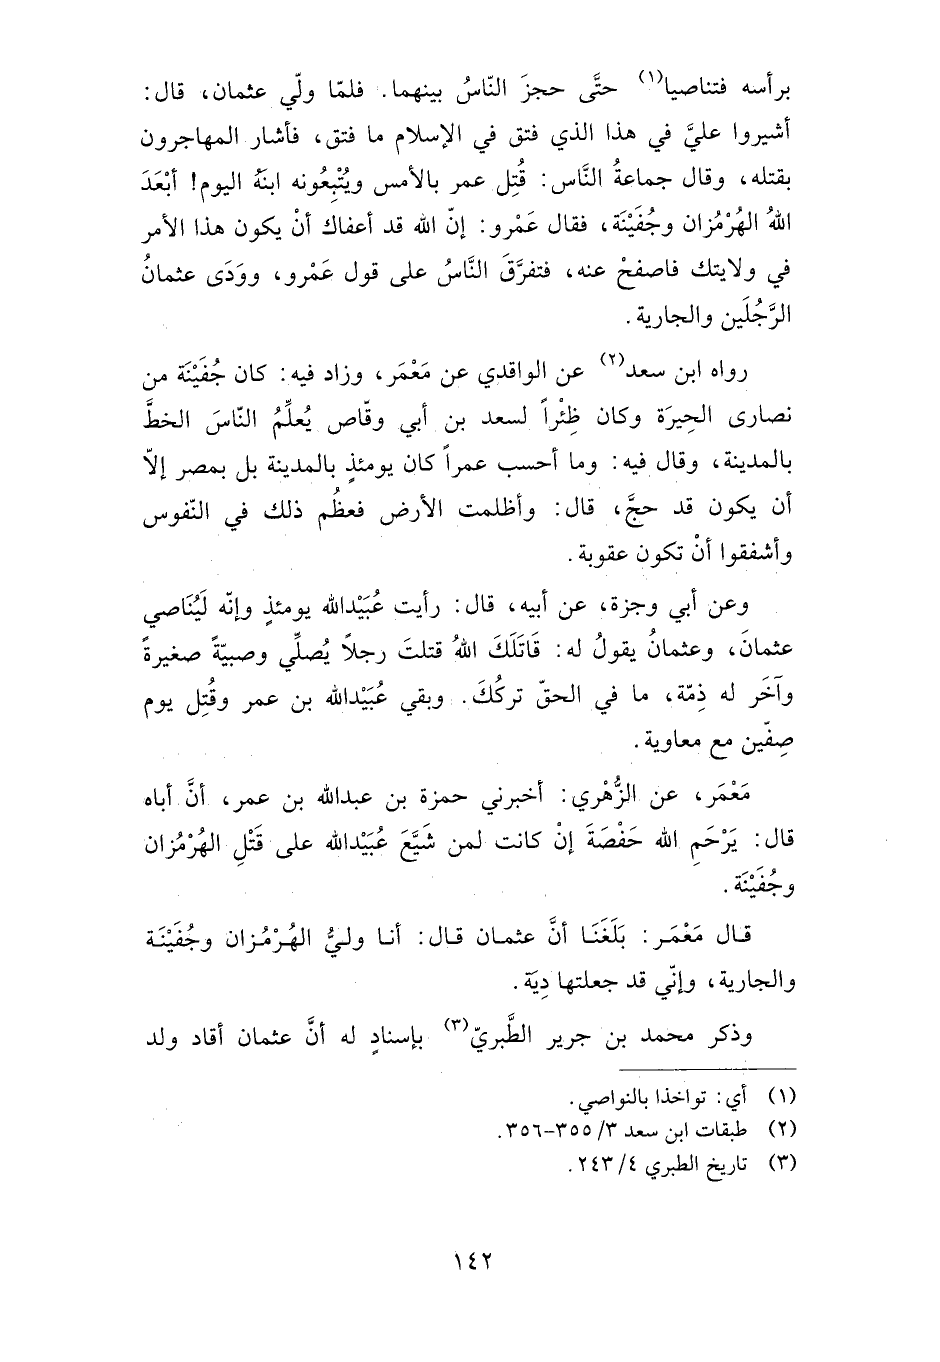 برأسه فتناصيا(١) حتَّى حجزَ النّاسُ بينهما. فلمّا ولّي عثمان، قال:
أشيروا عليَّ في هذا الذي فتق في الإسلام ما فتق، فأشار المهاجرون
بقتله، وقال جماعةُ النَّاس: قُتِل عمر بالأمس ويُتْبِعُونه ابنَهُ اليوم! أبْعَدَ
اللهُ الهُرْمُزان وجُفَيْنَة، فقال عَمْرو: إنّ الله قد أعفاك أنْ يكون هذا الأمر
في ولايتك فاصفحْ عنه، فتفرَّقَ النَّاسُ على قول عَمْرو، ووَدَى عثمانُ
الرَّجُلَين والجارية.
رواه ابن سعد(٢) عن الواقدي عن مَعْمَر، وزاد فيه: كان جُفَيْنَة من
نصارى الحِيرَة وكان ظِئْراً لسعد بن أبي وقّاص يُعلِّمُ النّاسَ الخطَّ
بالمدينة، وقال فيه: وما أحسب عمراً كان يومئذٍ بالمدينة بل بمصر إلاّ
أن يكون قد حجَّ، قال: وأظلمت الأرض فعظُم ذلك في النّفوس
وأشفقوا أنْ تكون عقوبة.
وعن أبي وجزة، عن أبيه، قال: رأيت عُبَيْدالله يومئذٍ وإنّه لَيُنَاصي
عثمانَ، وعثمانُ يقولُ له: قَاتَلَكَ اللهُ قتلتَ رجلاً يُصلِّي وصبيّةً صغيرةً
وآخَر له ذِمّة، ما في الحقّ تركُكَ. وبقي عُبَيْدالله بن عمر وقُتِل يوم
صِفّين مع معاوية.
مَعْمَر، عن الزُّهْري: أخبرني حمزة بن عبدالله بن عمر، أنَّ أباه
قال: يَرْحَمِ الله حَفْصَةَ إنْ كانت لمن شَيَّعَ عُبَيْدالله على قَتْلِ الهُرْمُزان
وجُفَيْنَة.
قال مَعْمَر: بَلَغَنَا أنَّ عثمان قال: أنا وليُّ الهُرْمُزان وجُفَيْنَة
والجارية، وإنّي قد جعلتها دِيَة.
وذكر محمد بن جرير الطَّبريّ(٣) بإسنادٍ له أنَّ عثمان أقاد ولد
(١) أي: تواخذا بالنواصي.
(٢) طبقات ابن سعد ٣/ ٣٥٥-٣٥٦.
(٣) تاريخ الطبري ٤/ ٢٤٣.
١٤٢